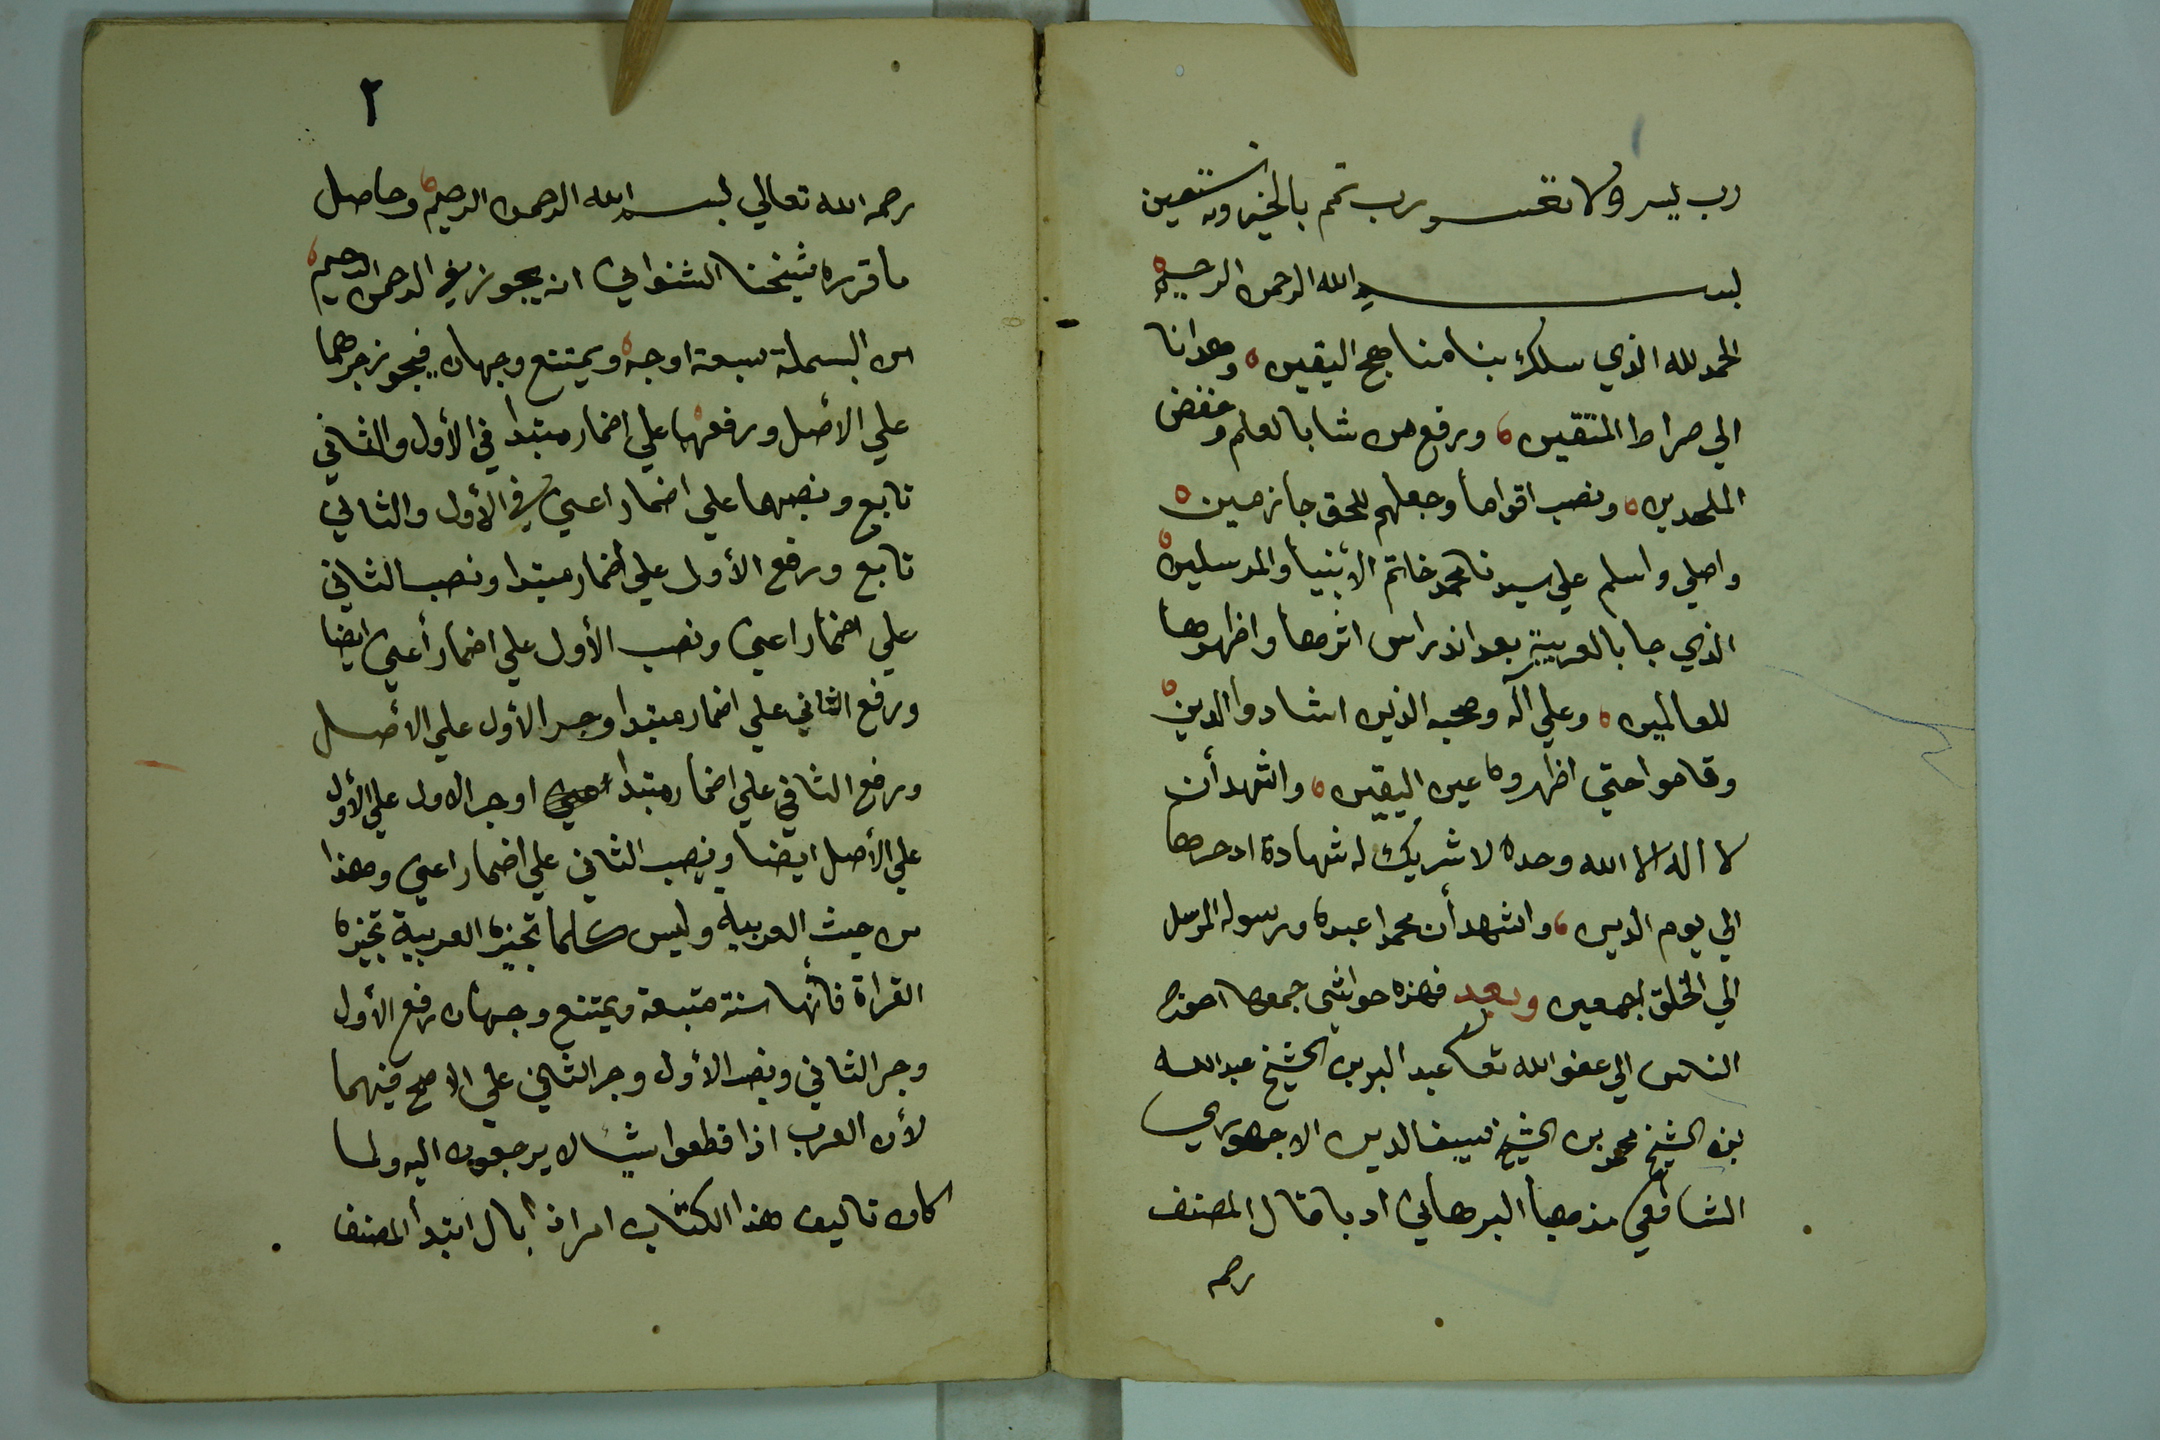 رب يسر ولا تعسر رب تمم بالخير وبه نستعين
بسم الله الرحمن الرحيم
الحمد لله الذي سلك بنا مناهج اليقين وهدانا
الي صراط المتقين ورفع من شا بالعلم وخفض
الملحدين ونصب اقواما وجعلهم للحق جازمين
واصلي واسلم علي سيدنا محمد خاتم الأنبيا والمرسلين
الذي جا بالعربية بعد اندراس اثرها واظهرها
للعالمين وعلي آله وصحبه الذين اشادوا الدين
وقاموا حتي اظهروه عين اليقين واشهد أن
لا اله الا الله وحده لا شريك له شهادة ادخرها
الي يوم الدين واشهد أن محمدا عبده ورسوله المرسل
الي الخلق اجمعين وبعد فهذه حواشي جمعها احوج
الناس الي عفو الله تعا عبد البر بن الشيخ عبد الله
بن الشيخ محمد بن الشيخ سيف الدين الاجهوري
الشافعي مذهبا البرهاني ادبا قال المصنف
رحمه
٢
رحمه الله تعالي بسم الله الرحمن الرحيم وحاصل
ما قرره شيخنا الشنواني انه يجوز في الرحمن الرحيم
من البسملة سبعة اوجه ويمتنع وجهان فيجوز جرهما
علي الأصل ورفعهما علي إضمار مبتدا في الأول والثاني
تابع ونصبهما علي اضمار اعني في الأول والثاني
تابع ورفع الأول علي اضمار مبتدا ونصب الثاني
علي اضمار اعني ونصب الأول علي اضمار أعني ايضا
ورفع الثاني علي اضمار مبتدا وجر الأول علي الأصل
ورفع الثاني علي اضمار مبتدا اعني اوجر الاول علي الأول
علي الأصل ايضا ونصب الثاني علي اضمار اعني وهذا
من حيث العربية وليس كلما تجيزه العربية تجيزه
القراة فانها سنة متبعة ويمتنع وجهان رفع الأول
وجر الثاني ونصب الأول وجر الثاني علي الاصح فيهما
لأن العرب اذا قطعوا شيئا لا يرجعون اليه ولما
كان تاليف هذا الكتاب امرا ذا بال ابتدأ المصنف